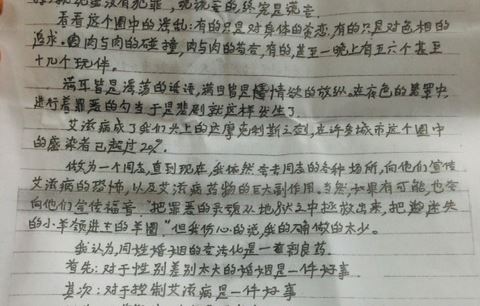 就说谎没有犯罪，说谎言的终究是谎言.
看看这个圈中的混乱:有的只是对身体的贪恋,有的只是对色相的
追求。肉与肉的碰撞,肉与肉的苟查,有的,甚至一晚上有五六个甚至
十几个玩伴。
满耳皆是淫荡的话语,满目皆是情欲的放纵。在夜色的笼罩中
进行着罪恶的勾当于是悲剧就这样发生了.
艾滋病成了我们头上的达摩克利斯之剑,在许多城市这个圈中
的感染者已超过20%.
做为一个同志,直到现在,我依然奔走同志的各种场所,向他们宣传
艾滋病的恐怖,以及艾滋病药物的巨大副作用。当然,如果有可能,也会
向他们宣传福音"把罪恶的灵魂从地狱之中拯救出来,把迷失
的小羊领进主的羊圈"但我伤心的说,我的确做的太少。
我认为,同性婚姻的合法化是一剂良药.
首先:对于性别差别太大的婚姻是一件好事.
其次:对于控制艾滋病是一件好事